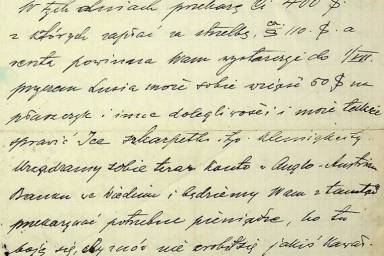 W tych dniach przekażę Ci 400 $.
z których zapłać za strelbę, ca $ 110.$ a
reszta powinna Wam wystarczyć do 1/VII.
przyczem Lusia może sobie wziąść 50 $ na
płaszczyk i inne dolegliwości i może
sprawić Ice szkarpetki
Urządzamy sobie teraz konto w Anglo-Austrian
Banku we Wiedniu i będziemy Wam stamtąd
przekazywać potrzebne pieniądze, bo tu
boję się, nie zrobiłaś jakiś kawał.